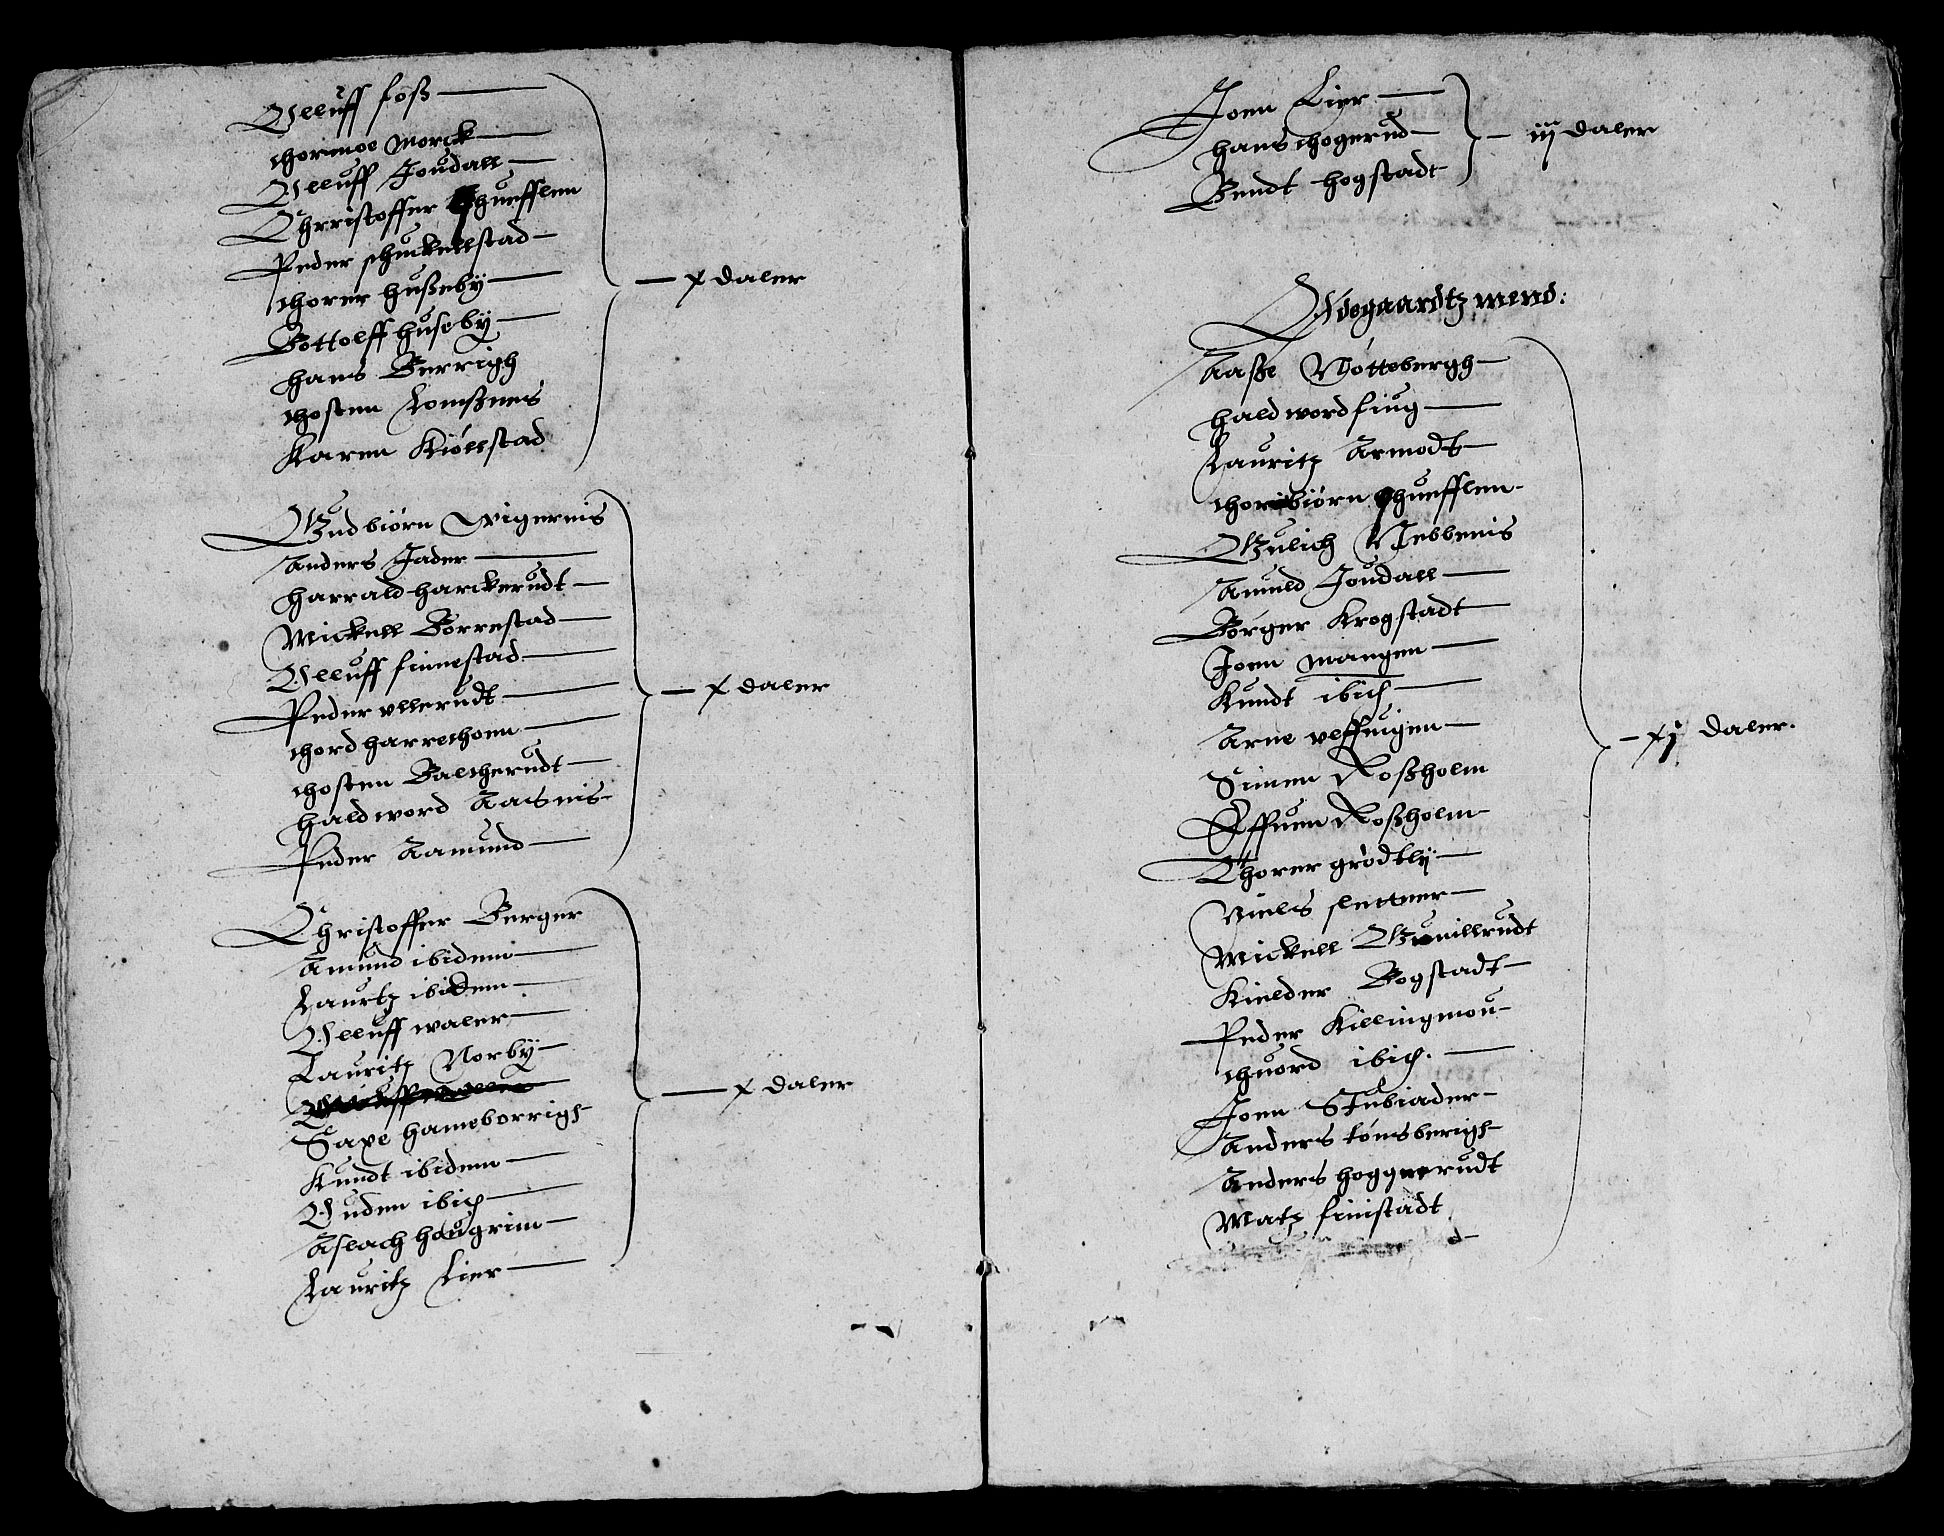 Olluff foss
thormoe Morck
Olluff Joudall
Christoffer huefflen
Peder schuckellstad
thorer husseby
Bottolff huseby
hans Berrigh
thosten Lomssnes
Karen Kiöllstad
x daler
Gudbiörn Wigernis
Anders Jader
harrald harckerudt
Mickell Borrestad
Olluff finnestad
Peder ullerudt
thord harrethonn
thosten Balcherudt
haldword Aasnis
Peder Aamund
x daler
Christoffer Berger
Amund ibidem
Laurtz ibidem
Olluff waler
Lauritz Norby
Saxe hameborrigh
Kundt ibidem
Guden ibid
Aslach hougrim
Lauritz Lier
x daler
Joen Lier
hans thogerud
Bendt hogstadt
iij daler
Ödegaardtz mend:
Aasse Wöttebergh
haldword fiug
Lauritz Armodt
thorbiörn huefflen
Gulich Nebbenis
Amuld Joudall
Börger Krogstadt
Joen mangen
Kundt ibid
Arne veffuigen
Simen Rossholm
Effuen Rossholm
Thorer grödtly
Niels slettner
Mickell Gunillrudt
Kielder Bogstadt
Peder Killingmou
thuord ibid.
Joen Stubiader
Anders tönsberigh
Anders hoggnerudt
Matz finistadt
xj daler.